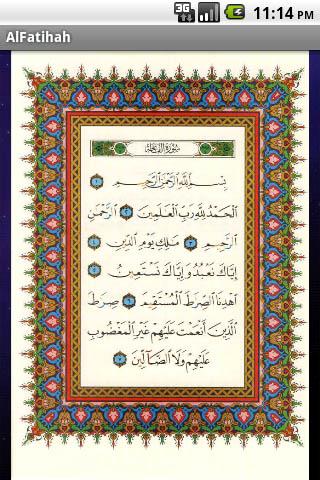 3G 11:14 PM
AlFatihah
سورة الفاتحة
بِسْمِ ٱللَّهِ ٱلرَّحْمَٰنِ ٱلرَّحِيمِ ١
ٱلْحَمْدُ لِلَّهِ رَبِّ ٱلْعَٰلَمِينَ ٢ ٱلرَّحْمَٰنِ
ٱلرَّحِيمِ ٣ مَٰلِكِ يَوْمِ ٱلدِّينِ ٤
إِيَّاكَ نَعْبُدُ وَإِيَّاكَ نَسْتَعِينُ ٥
ٱهْدِنَا ٱلصِّرَٰطَ ٱلْمُسْتَقِيمَ ٦ صِرَٰطَ
ٱلَّذِينَ أَنْعَمْتَ عَلَيْهِمْ غَيْرِ ٱلْمَغْضُوبِ
عَلَيْهِمْ وَلَا ٱلضَّآلِّينَ ٧